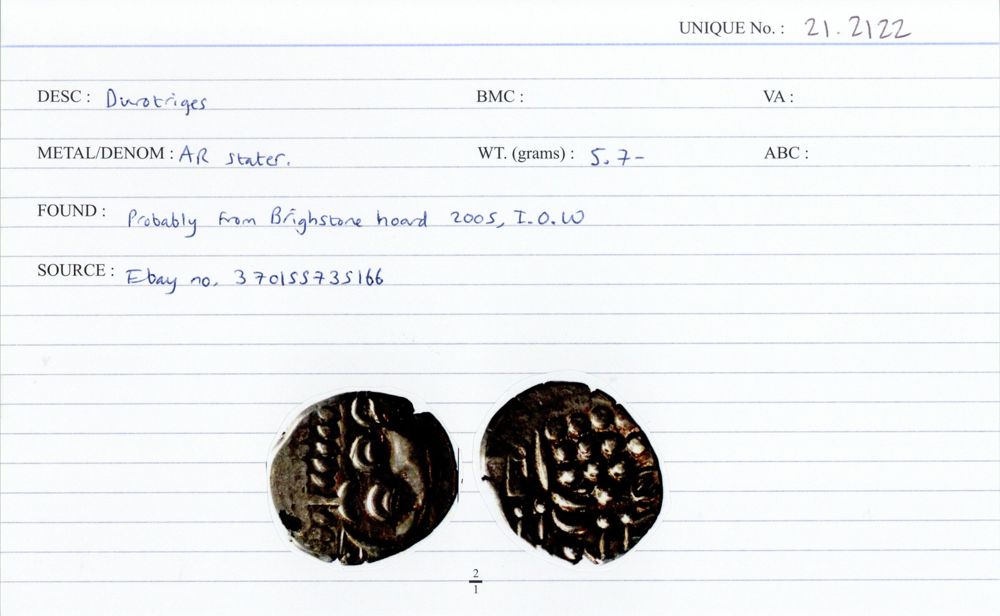 UNIQUE No. : 21.2122
DESC : Durotriges BMC : VA :
METAL/DENOM : AR stater. WT. (grams) : 5.7- ABC :
FOUND : Probably from Brighstone hoard 2005, I.O.W
SOURCE : Ebay no. 370155735166
2
1